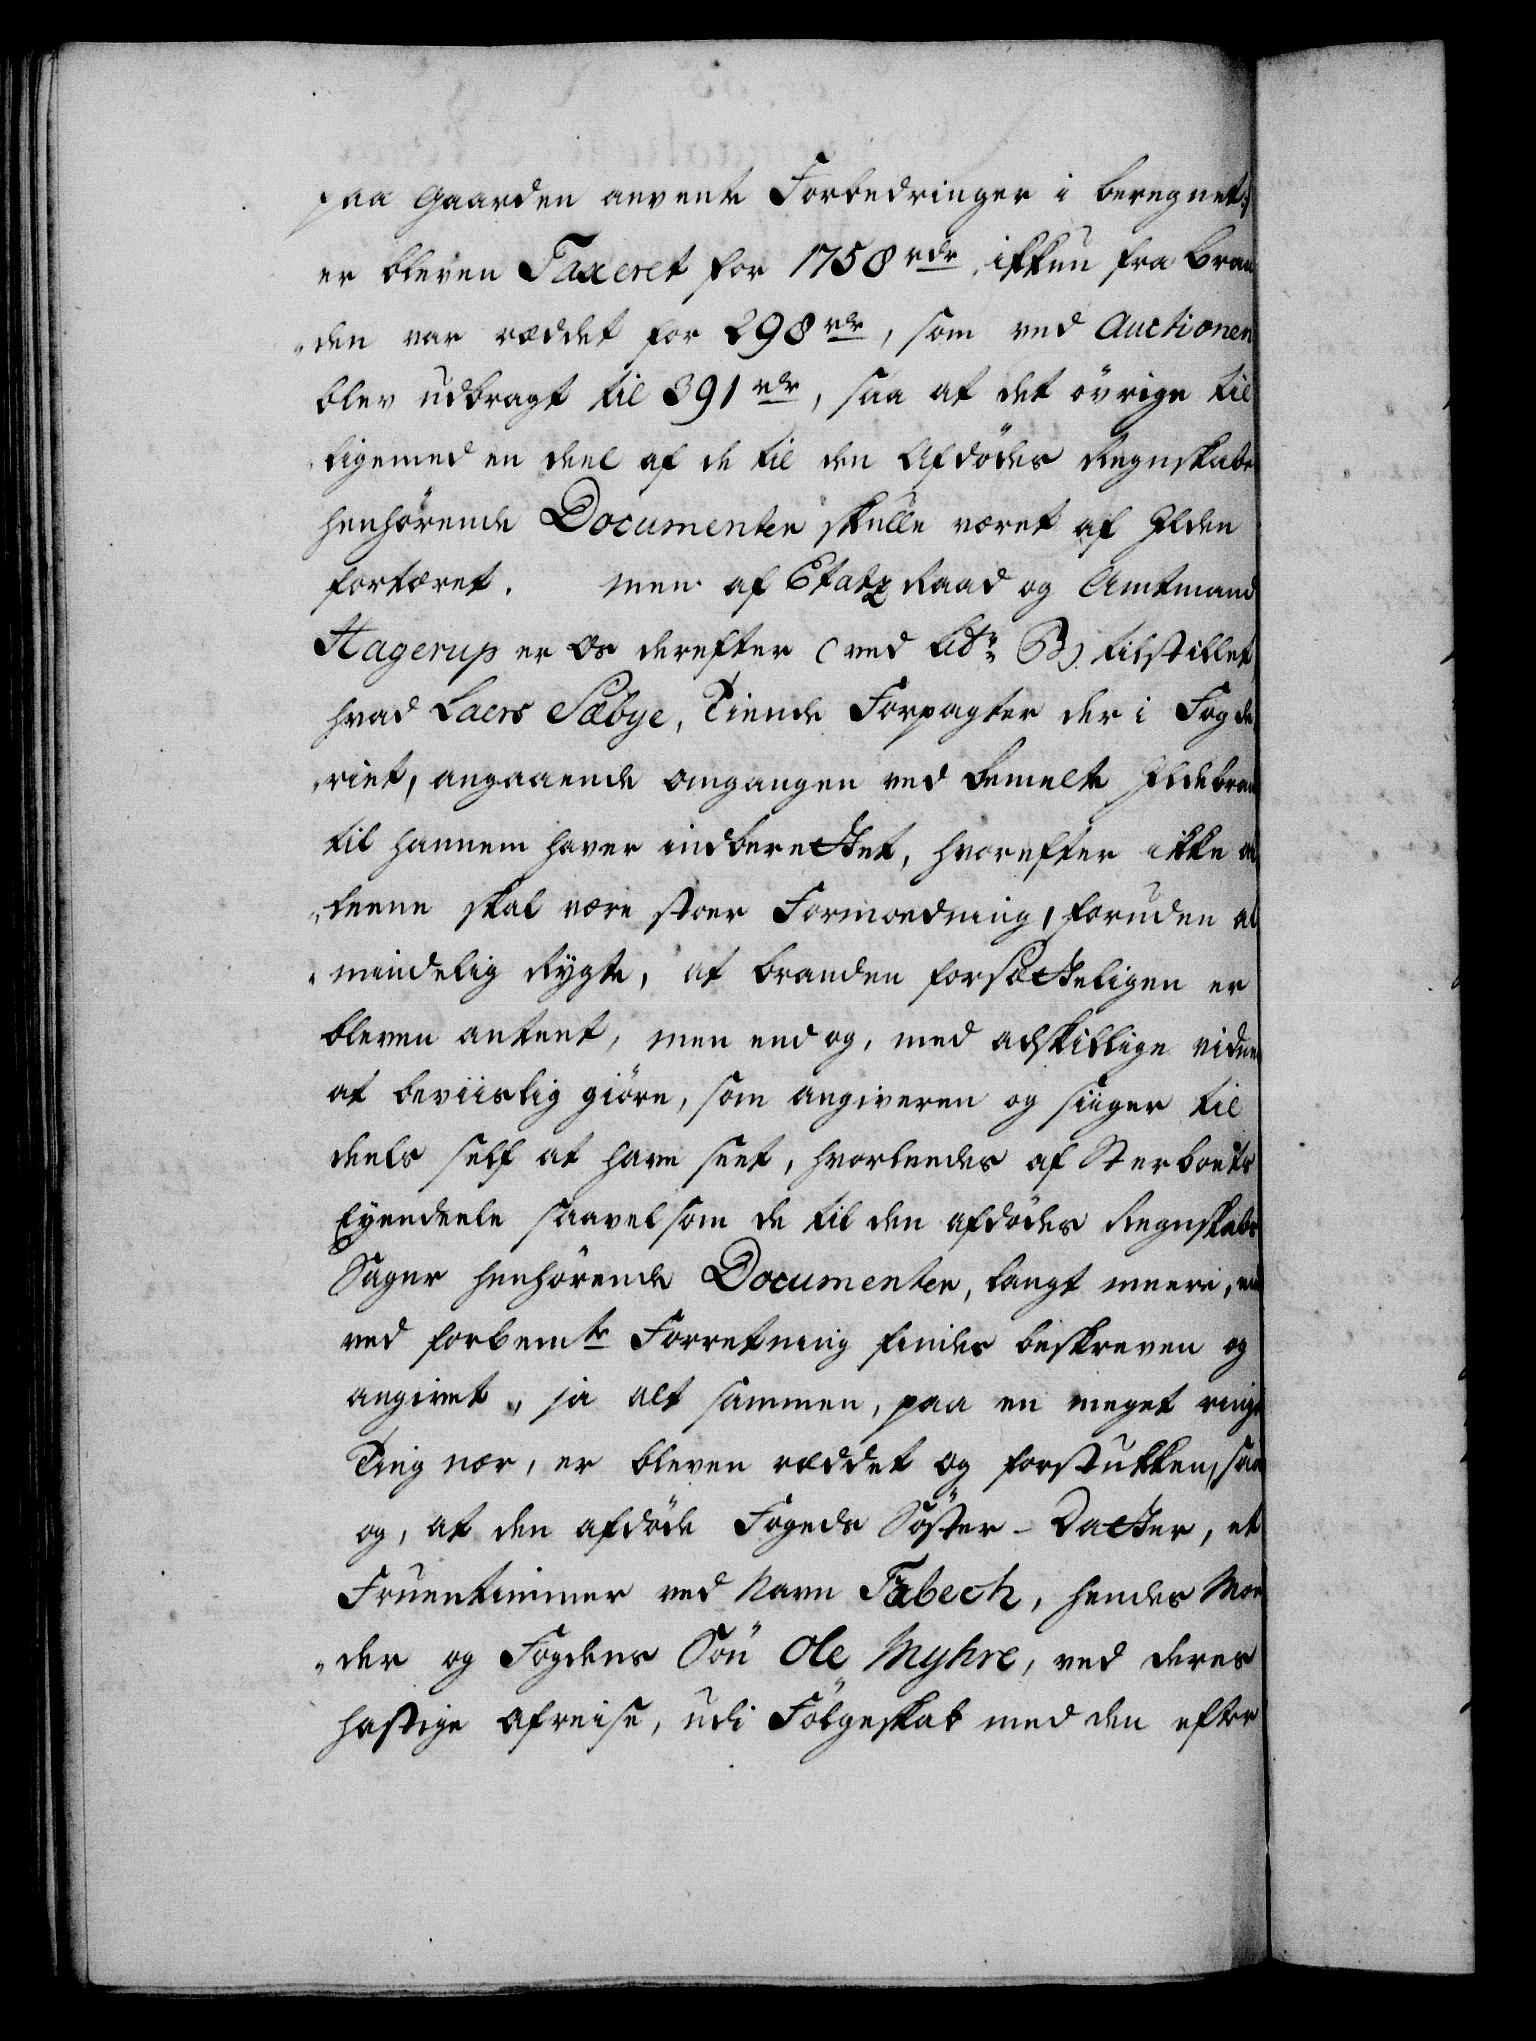 paa Gaarden anvente Forbedringer i beregnet:/
er bleven Taxeret for 1758 rdr, ikkun fra Bran
„den var reddet for 298 rdr, som ved Auctionen
blev udbragt til 391 rdr, saa at det övrige til
„ligemed en deel af de til den Afdödes Regnskabs
henhörende Documenter skulle været af Ilden
fortæret. men af Etatz Raad og Amtmand
Hagerup er Os derefter (ved Litr: B) tilstillet
hvad Laers Sæbye, Tiende Forpagter der i Fogde
„riet, angaaende omgangen ved bemelte Ildebran
til hannem haver indberettet, hvorefter ikke al
„leene skal være stoer Formoedning, foruden al
„mindelig Rygte, at branden forsætteligen er
bleven antent, men end og, med adskillige vidne
at beviislig giöre, som angiveren og siiger til
deels self at have seet, hvorledes af Sterboets
Eyendeele saavelsom de til den afdödes Regnskabs
Sager henhörende Documenter, langt meere, end
ved forbemte Forretning findes beskreven og
angivet, ja alt sammen, paa en meget ringe
Ting nær, er bleven reddet og forstukken, saa
og, at den afdöde Fogeds Söster-Datter, et
Fruentimmer ved Navn Tabech, hendes Moe
„der og Fogdens Sön Ole Myhre, ved deres
hastige afreise, udi Fölgeskab med den efter